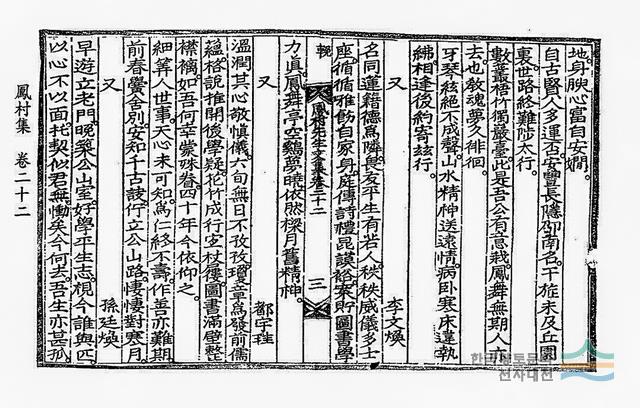 地身腴心富自安嫺
自古賢人多運否安豐長隱邵南名干旌未及丘園
裏世路終難陟太行
數叢梧竹獨嚴臺此是吾公有意栽鳳舞無期人亦
去也敎魂夢久徘徊
牙琴絃絕不成聲山水精神送遠情病卧寒床違執
紼相逢後約寄玆行
又 李文煥
名同蓮籍德爲隣與友平生有若人秩秩威儀多士
座循循雅飭自家身庭傳詩禮昆謨裕案貯圖書學
力眞鳳舞亭空鷄夢曉依然樑月舊精神
輓 鳳村先生文集卷二十二 三
又 都宇珪
溫潤其心敬愼儀六旬無日不孜孜瓊章爲發前儒
蘊格說推開後學疑花竹成行室杖屨圖書滿壁整
襟褵如吾何幸蒙殊眷四十年今依仰之
細筭人世事天心未可知爲仁終不壽作善亦難期
前春黌舍別安知千古訣行立公山路悽悽對寒月
又 孫廷煥
早遊立老門晩築公山室好學平生志視今誰與匹
以心不以面托契似君無慟矣今何去吾生亦甚孤
鳳村集 卷二十二
한국향토문화
전자대전